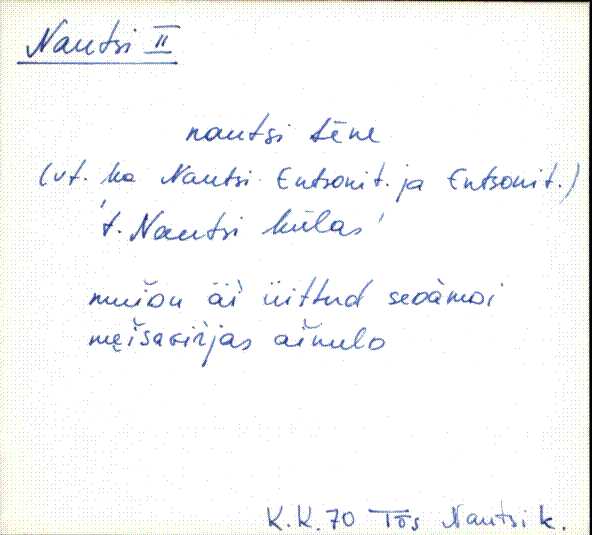 Nautsi II
nautsi tēne
(vt. ka Nautsi Entsonit. ja Entsonit.)
't. Nautsi külas'
muiou äi üittud
ainulo
K.K. 70 Tõs Nautsi k.